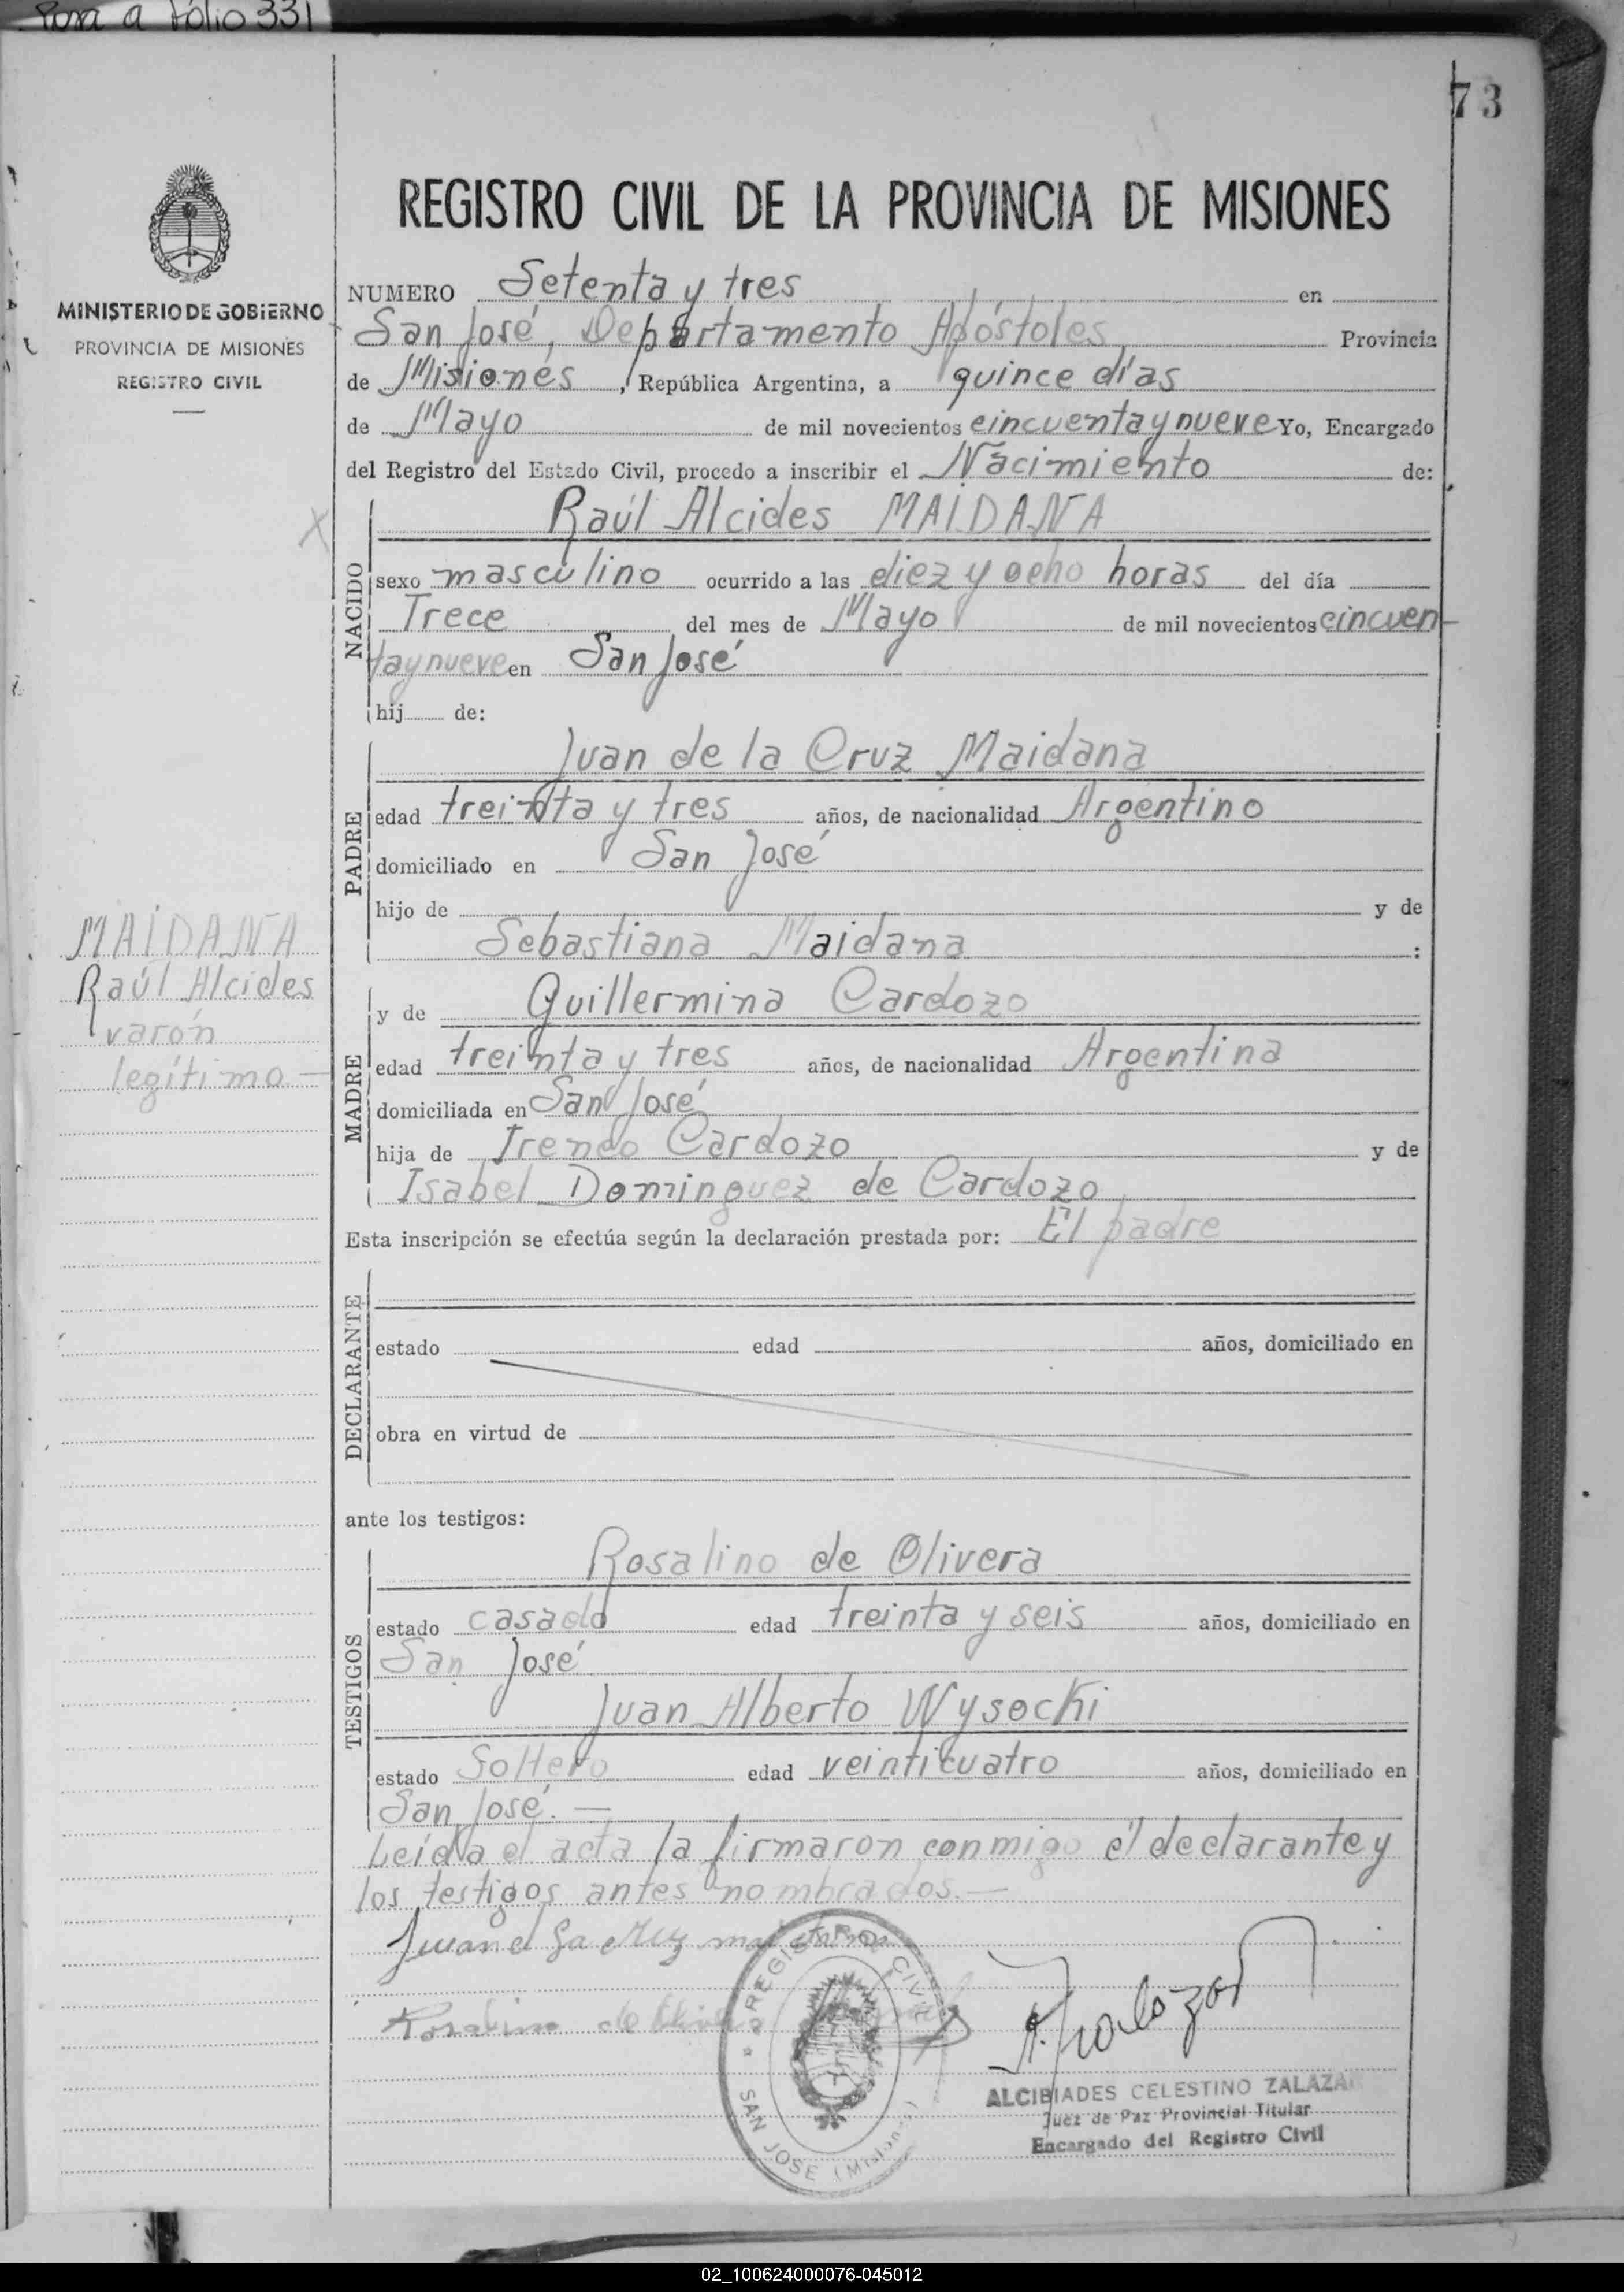 Pasa a folio 331
73
MINISTERIO DE GOBIERNO
PROVINCIA DE MISIONES
REGISTRO CIVIL
REGISTRO CIVIL DE LA PROVINCIA DE MISIONES
NUMERO Setenta y tres en
San José, Departamento Apóstoles, Provincia
de Misiones, República Argentina, a quince días
de Mayo de mil novecientos cincuenta y nueve Yo, Encargado
del Registro del Estado Civil, procedo a inscribir el Nacimiento de:
NACIDO
Raúl Alcides MAIDANA
sexo masculino ocurrido a las diez y ocho horas del día
Trece del mes de Mayo de mil novecientos cincuen-
ta y nueve en San José
hij de:
PADRE
Juan de la Cruz Maidana
edad treinta y tres años, de nacionalidad Argentino
domiciliado en San José
hijo de y de
Sebastiana Maidana :
MAIDANA
Raúl Alcides
varón
legítimo.—
MADRE
y de Guillermina Cardozo
edad treinta y tres años, de nacionalidad Argentina
domiciliada en San José
hija de Ireneo Cardozo y de
Isabel Dominguez de Cardozo
Esta inscripción se efectúa según la declaración prestada por: El padre
DECLARANTE
estado edad años, domiciliado en
obra en virtud de
ante los testigos:
TESTIGOS
Rosalino de Olivera
estado casado edad treinta y seis años, domiciliado en
San José
Juan Alberto Wysocki
estado Soltero edad veinticuatro años, domiciliado en
San José.—
Leída el acta la firmaron conmigo el declarante y
los testigos antes nombrados.—
Rosalino de Olivera
REGISTRO CIVIL
SAN JOSE (Misiones)
ALCIBIADES CELESTINO ZALAZAR
Juez de Paz Provincial Titular
Encargado del Registro Civil
02_100624000076-045012